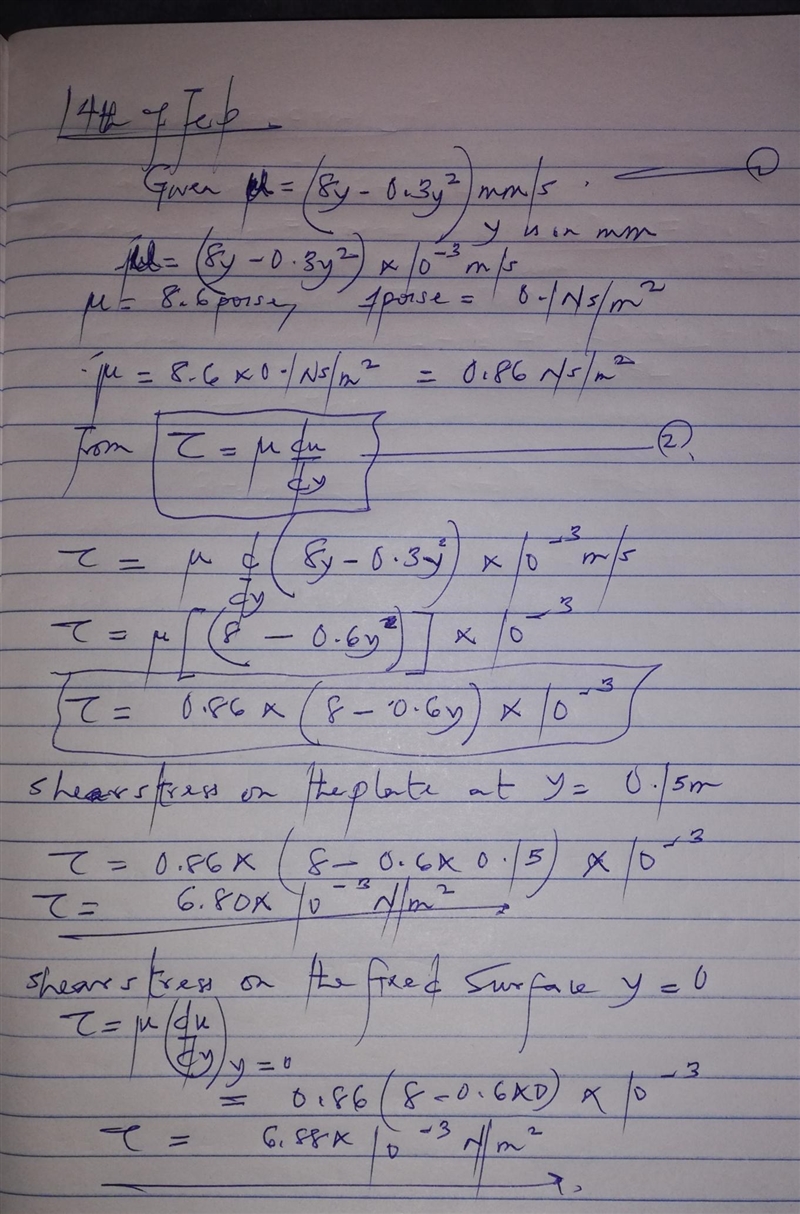 14th of Feb
Given u = (8y - 0.3y²) mm/s . ——— ①
y is in mm
u = (8y - 0.3y²) × 10⁻³ m/s
μ = 8.6 poise, 1 poise = 0.1 Ns/m²
∴ μ = 8.6 × 0.1 Ns/m² = 0.86 Ns/m²
From τ = μ du/dy ——— ②
τ = μ d/dy (8y - 0.3y²) × 10⁻³ m/s
τ = μ [(8 - 0.6y)] × 10⁻³
τ = 0.86 × (8 - 0.6y) × 10⁻³
Shear stress on the plate at y = 0.15m
τ = 0.86 × (8 - 0.6 × 0.15) × 10⁻³
τ = 6.80 × 10⁻³ N/m²
Shear stress on the fixed surface y = 0
τ = μ (du/dy) y = 0
= 0.86 (8 - 0.6×0) × 10⁻³
τ = 6.88 × 10⁻³ N/m²